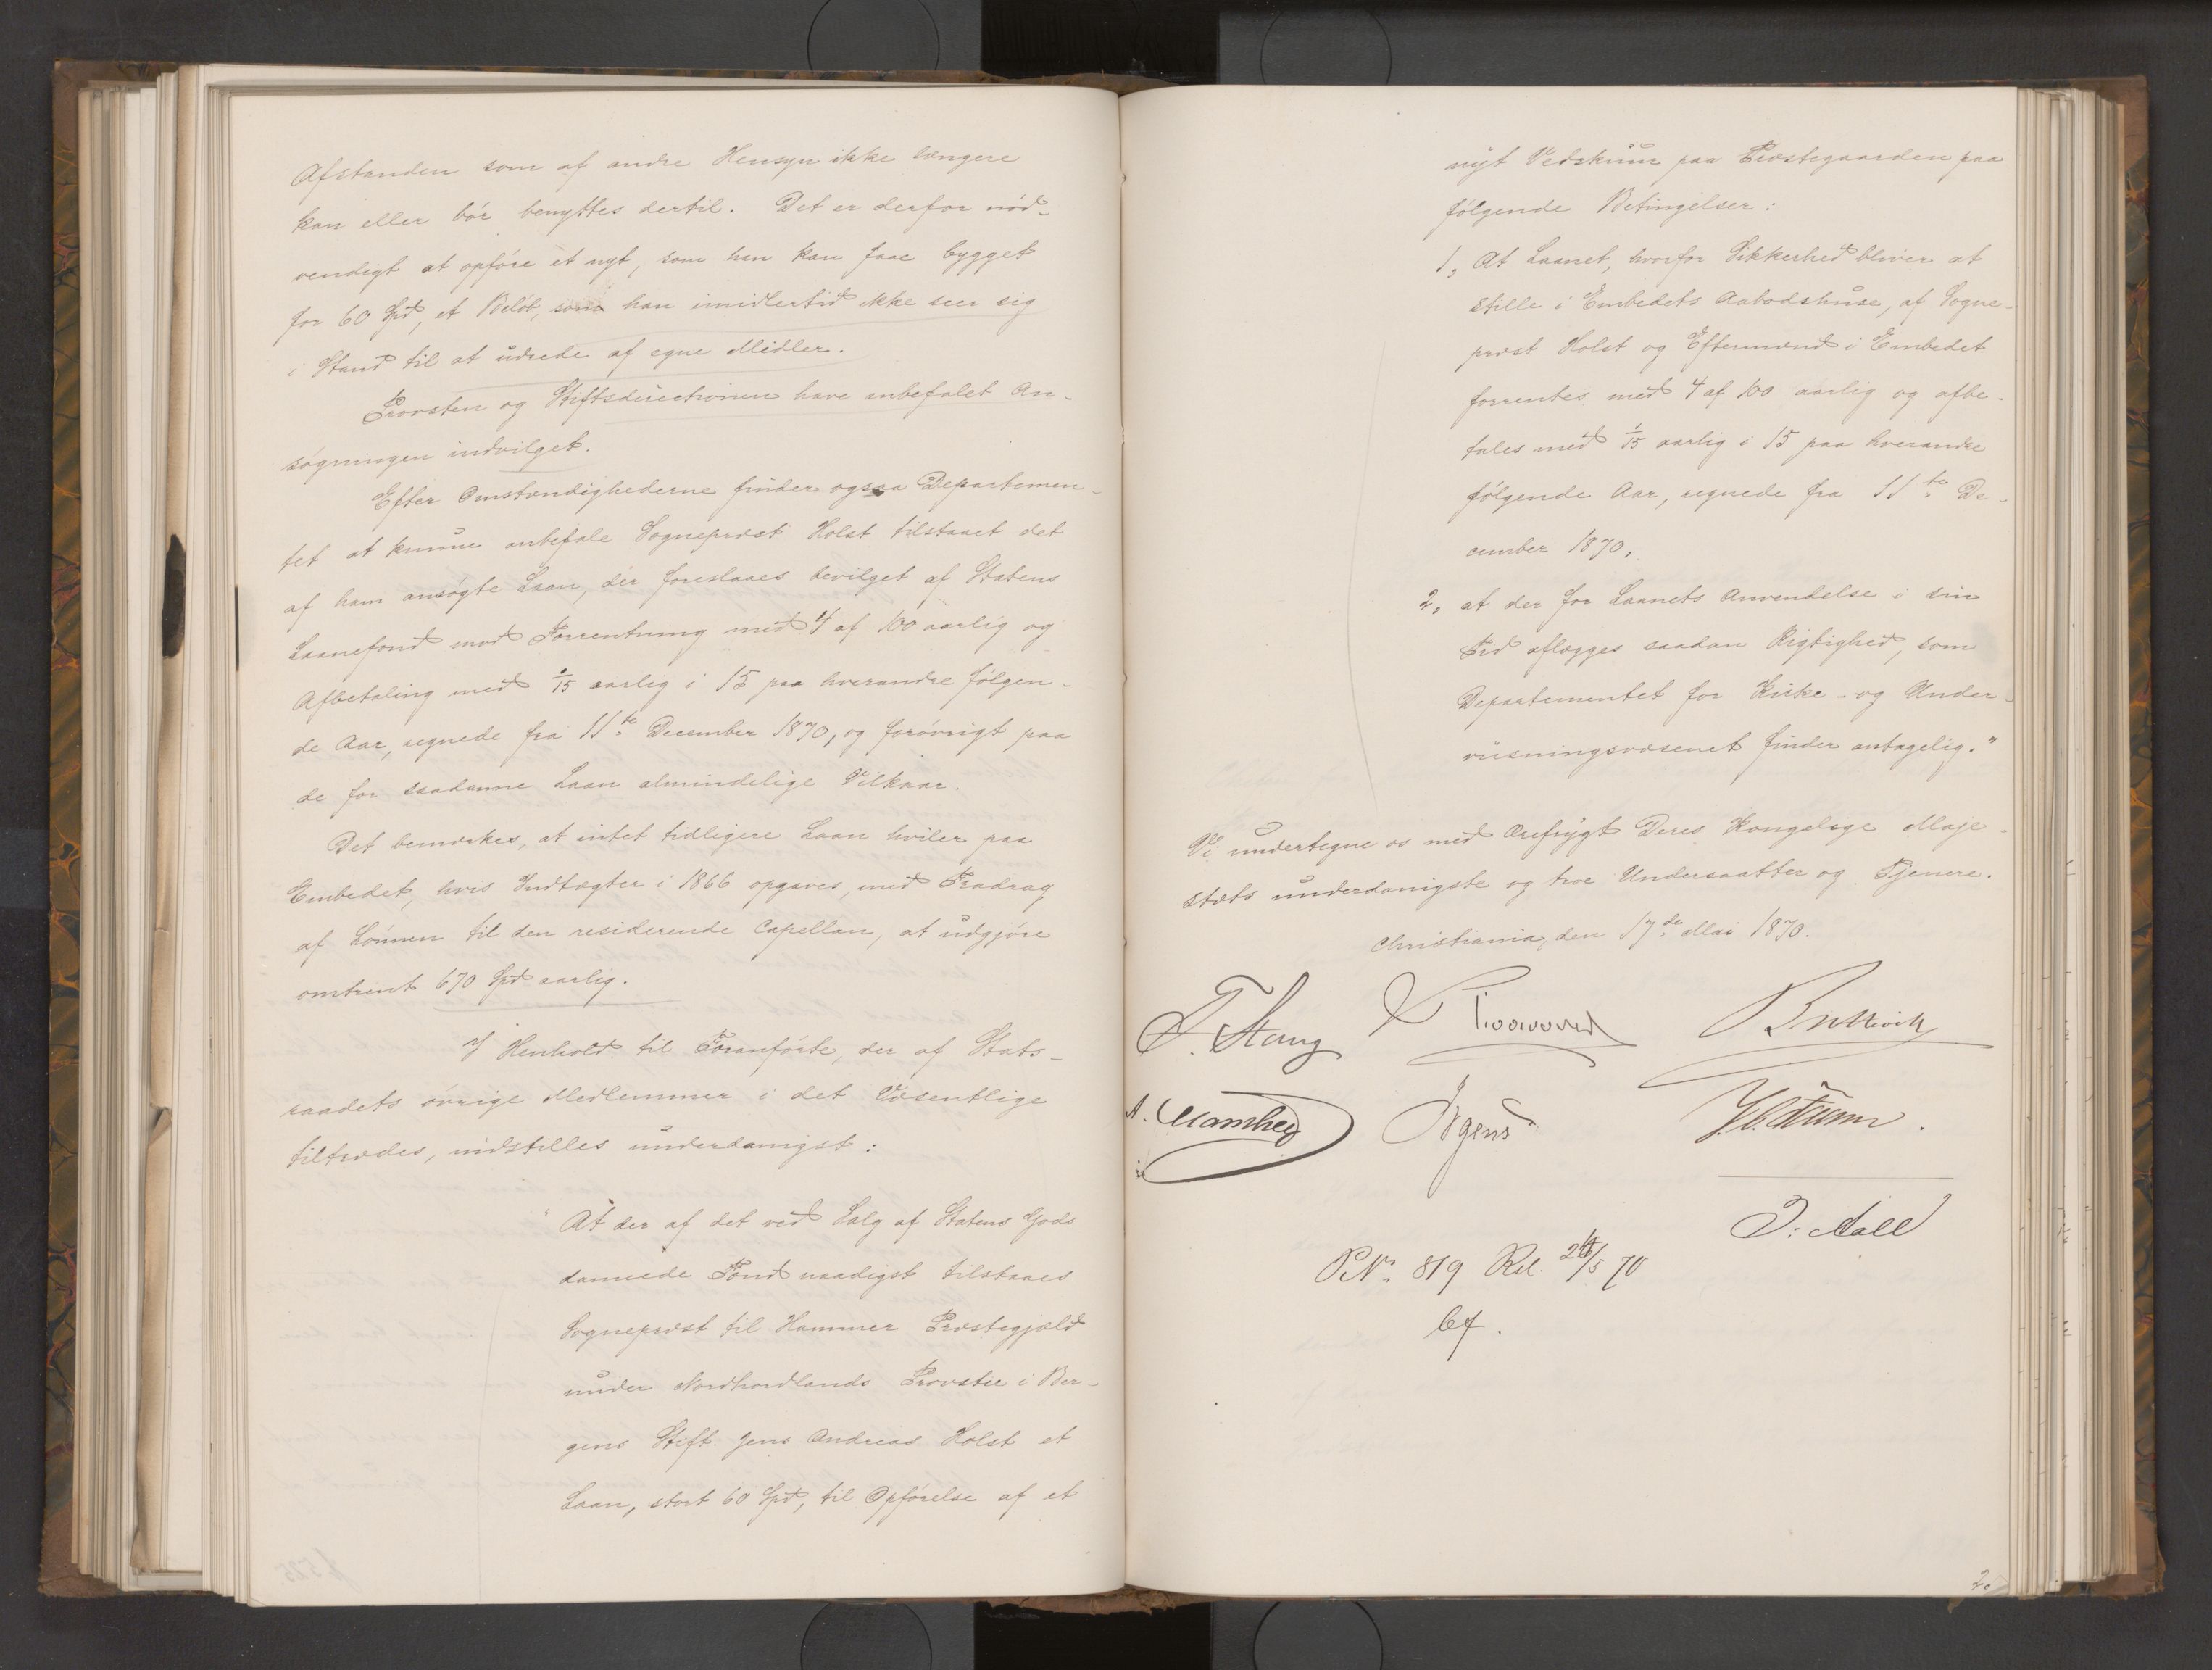 Afstanden som af andre Hensyn ikke længere
kan eller bör benyttes dertil. Det er derfor nöd-
vendigt at opföre et nyt, som han kan faae bygget
for 60 Spd, et Belöb, som han imidlertid ikke seer sig
i Stand til at udrede af egne Midler.
Provsten og Stiftsdirectionen have anbefalet An-
sögningen indvilget.
Efter Omstændighederne finder ogsaa Departemen-
tet at kunne anbefale Sognepræst Holst tilstaaet det
af ham ansögte Laan, der foreslaaes bevilget af Statens
Laanefond mod Forrentning med 4 af 100 aarlig og
Afbetaling med 1/15 aarlig i 15 paa hverandre fölgen-
de Aar, regnede fra 11te December 1870, og forövrigt paa
de for saadanne Laan almindelige Vilkaar.
Det bemærkes, at intet tidligere Laan hviler paa
Embedet, hvis Indtægter i 1866 opgaves, med Fradrag
af Lönnen til den residerende Capellan, at udgjöre
omtrent 670 Spd aarlig.
I Henhold til Foranförte, der af Stats-
raadets övrige Medlemmer i det Væsentlige
tiltrædes, indstilles underdanigst:
"At der af det ved Salg af Statens Gods
dannede Fond naadigst tilstaaes
Sognepræst til Hammer Præstegjæld
under Nordhordlands Provstie i Ber-
gens Stift Jens Andreas Holst et
Laan, stort 60 Spd, til Opförelse af et
nyt Vedskuur paa Præstegaarden paa
fölgende Betingelser:
1, At Laanet, hvorfor Sikkerhed bliver at
stille i Embedets Aabodshuse, af Sogne-
præst Holst og Eftermænd i Embedet
forrentes med 4 af 100 aarlig og afbe-
tales med 1/15 aarlig i 15 paa hverandre
fölgende Aar, regnede fra 11te De-
cember 1870,
2, at der for Laanets Anvendelse i sin
Tid aflægges saadan Rigtighed, som
Departementet for Kirke- og Under-
viisningsvæsenet finder antagelig."
Vi undertegne os med Ærefrygt Deres Kongelige Maje-
stæts underdanigste og troe Undersaatter og Tjenere.
Christiania, den 17de Mai 1870.
F. Stang
Irgens
J. Aall
P.N. 819 Rel. /5 70